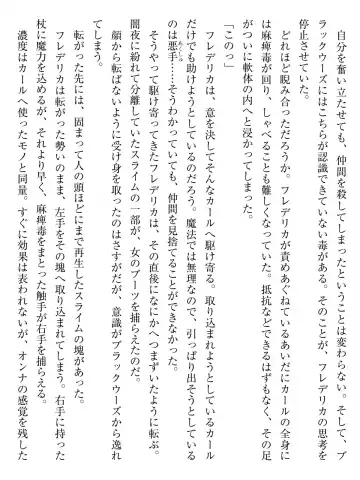 自分を奮い立たせても、仲間を殺してしまったということは変わらない。そして、ブ
ラックウーズにはこちらが認識できていない毒がある。そのことが、フレデリカの思考を
停止させていた。
どれほど睨み合っただろうか。フレデリカが責めあぐねているあいだにカールの全身に
は麻痺毒が回り、しゃべることも難しくなっていた。抵抗などできるはずもなく、その足
がついに軟体の内へと浸かってしまった。
「このっ」
フレデリカは、意を決してそんなカールへ駆け寄る。取り込まれようとしているカール
だけでも助けようとしているのだろう。魔法では無理なので、引っぱり出そうとしている
のは悪手……そうわかっていても、仲間を見捨てることができなかった。
そうやって駆け寄ってきたフレデリカは、その直後になにかへつまずいたように転ぶ。
闇夜に紛れて分離していたスライムの一部が、女のブーツを捕らえたのだ。
顔から転ばないように受け身を取ったのはさすがだが、意識がブラックウーズから逸れ
てしまう。
転がった先には、固まって人の頭ほどにまで再生したスライムの塊があった。
フレデリカは転がった勢いのまま、左手をその塊へ取り込まれてしまう。右手に持った
杖に魔力を込めるが、それより早く、麻痺毒をまとった触手が右手を捕らえる。
濃度はカールへ使ったモノと同量。すぐに効果は表われないが、オンナの感覚を残した